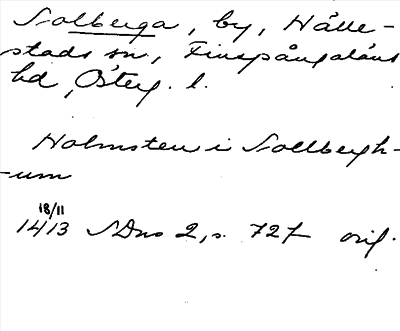 Solberga, by, Hälle-
stads sn, Finspångaläns
hd, Österg. l.
Holmsten i Sollbergh-
-um
18/11
1413 SDns 2, s. 727 orig.